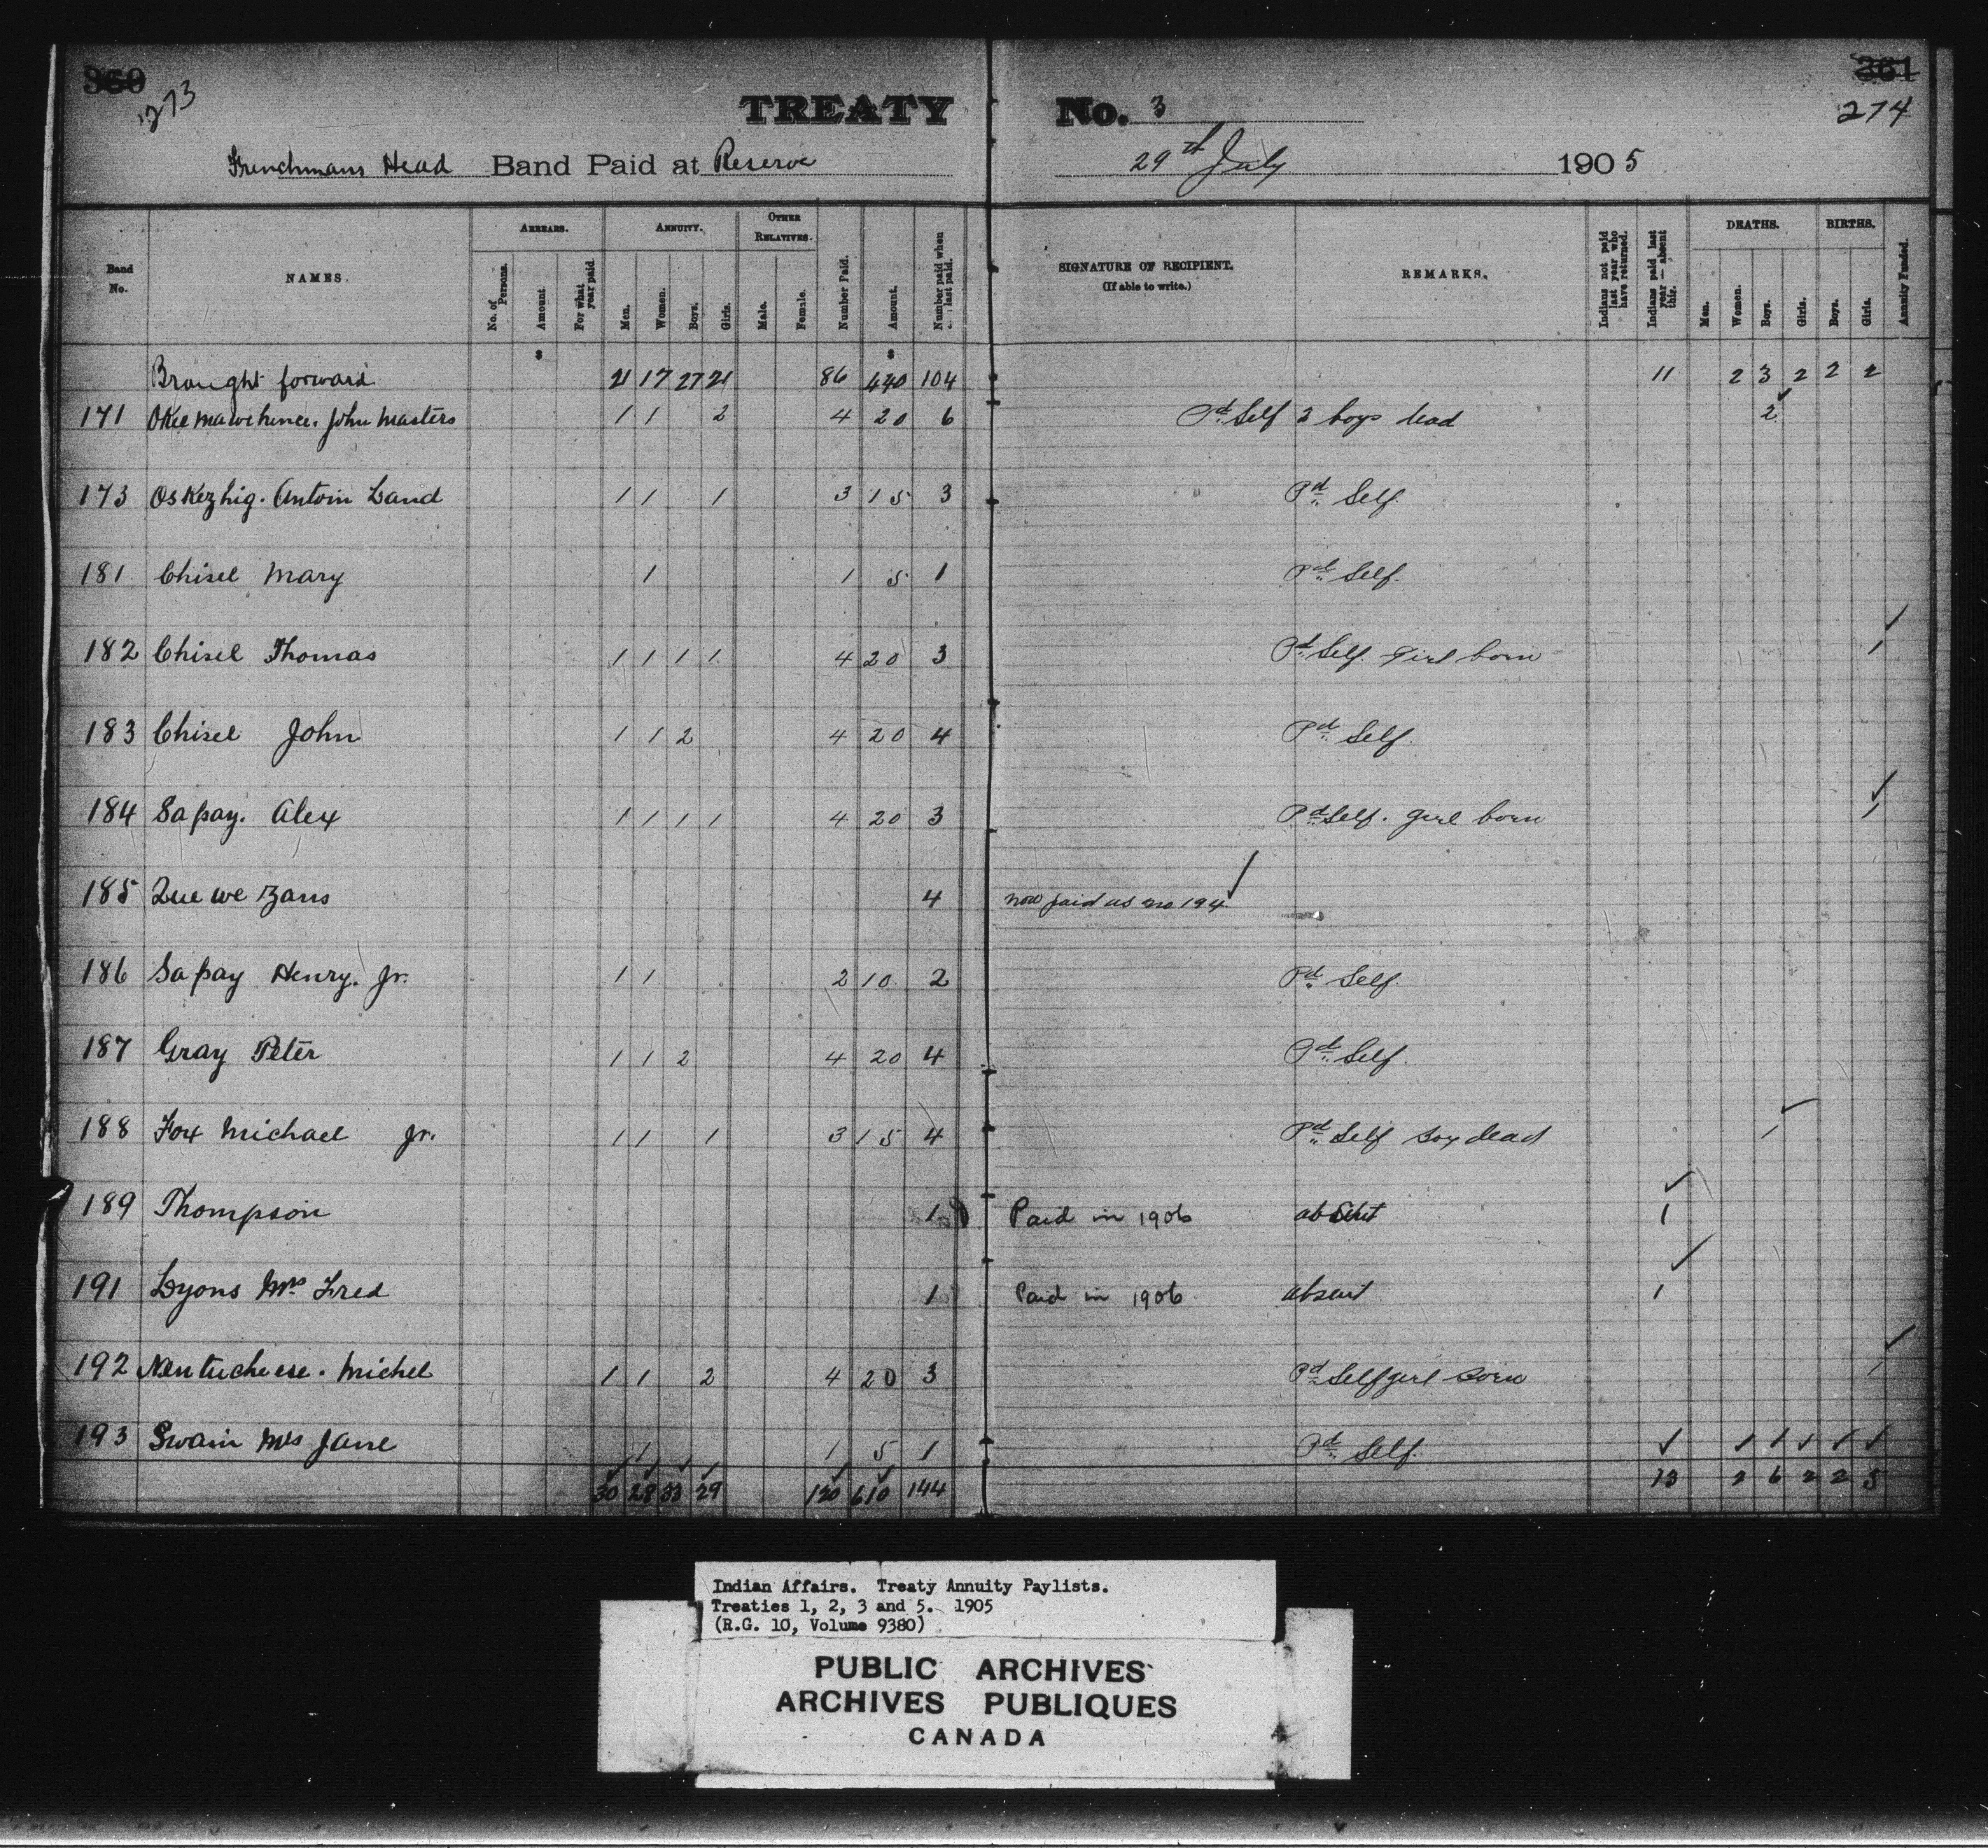 360 361
273 274
TREATY No. 3
Frenchmans Head Band Paid at Reserve 29th July 1905
Band No. NAMES. ARREARS. No. of Persons. Amount. For what year paid. ANNUITY. Men. Women. Boys. Girls. OTHER RELATIVES. Male. Female. Number Paid. Amount. Number paid when last paid. SIGNATURE OF RECIPIENT. (If able to write.) REMARKS. Indians not paid last year who have returned. Indians paid last year — absent this. DEATHS. Men. Women. Boys. Girls. BIRTHS. Boys. Girls. Annuity Funded.
$ $
Brought forward 21 17 27 21 86 440 104 11 2 3 2 2 2
171 Okee mawehince. John Masters 1 1 2 4 20 6 Pd. Self 2 boys dead 2
173 Oskezhig. Antoin Land 1 1 1 3 15 3 Pd. Self.
181 Chisel Mary 1 1 5 1 Pd. Self.
182 Chisel Thomas 1 1 1 1 4 20 3 Pd. Self. Girl born 1
183 Chisel John 1 1 2 4 20 4 Pd. Self.
184 Sapay. Alex 1 1 1 1 4 20 3 Pd. Self. girl born 1
185 Que we zans 4 now paid as no 194
186 Sapay Henry. Jr. 1 1 2 10 2 Pd. Self.
187 Gray Peter 1 1 2 4 20 4 Pd. Self.
188 Fox Michael Jr. 1 1 1 3 15 4 Pd. Self Boy dead 1
189 Thompson 1 Paid in 1906 absent 1
191 Lyons Mrs. Fred 1 Paid in 1906 absent 1
192 Nentucheese. Michel 1 1 2 4 20 3 Pd. Self girl born 1
193 Swain Mrs Jane 1 1 5 1 Pd. Self.
30 28 33 29 120 610 144 13 2 6 2 2 5
Indian Affairs. Treaty Annuity Paylists.
Treaties 1, 2, 3 and 5. 1905
(R.G. 10, Volume 9380)
PUBLIC ARCHIVES
ARCHIVES PUBLIQUES
CANADA